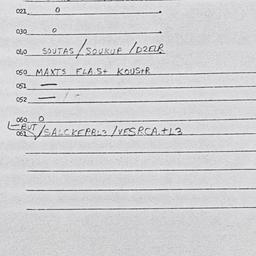 021 0
030 0
040 SOUTAS/SOUKUP/DZELR
050 MAXTS FLA.S+ KOUS+R
051 —
052 —
060 0
061 BUT/SALCKEPBL3/VESRCA.+L3